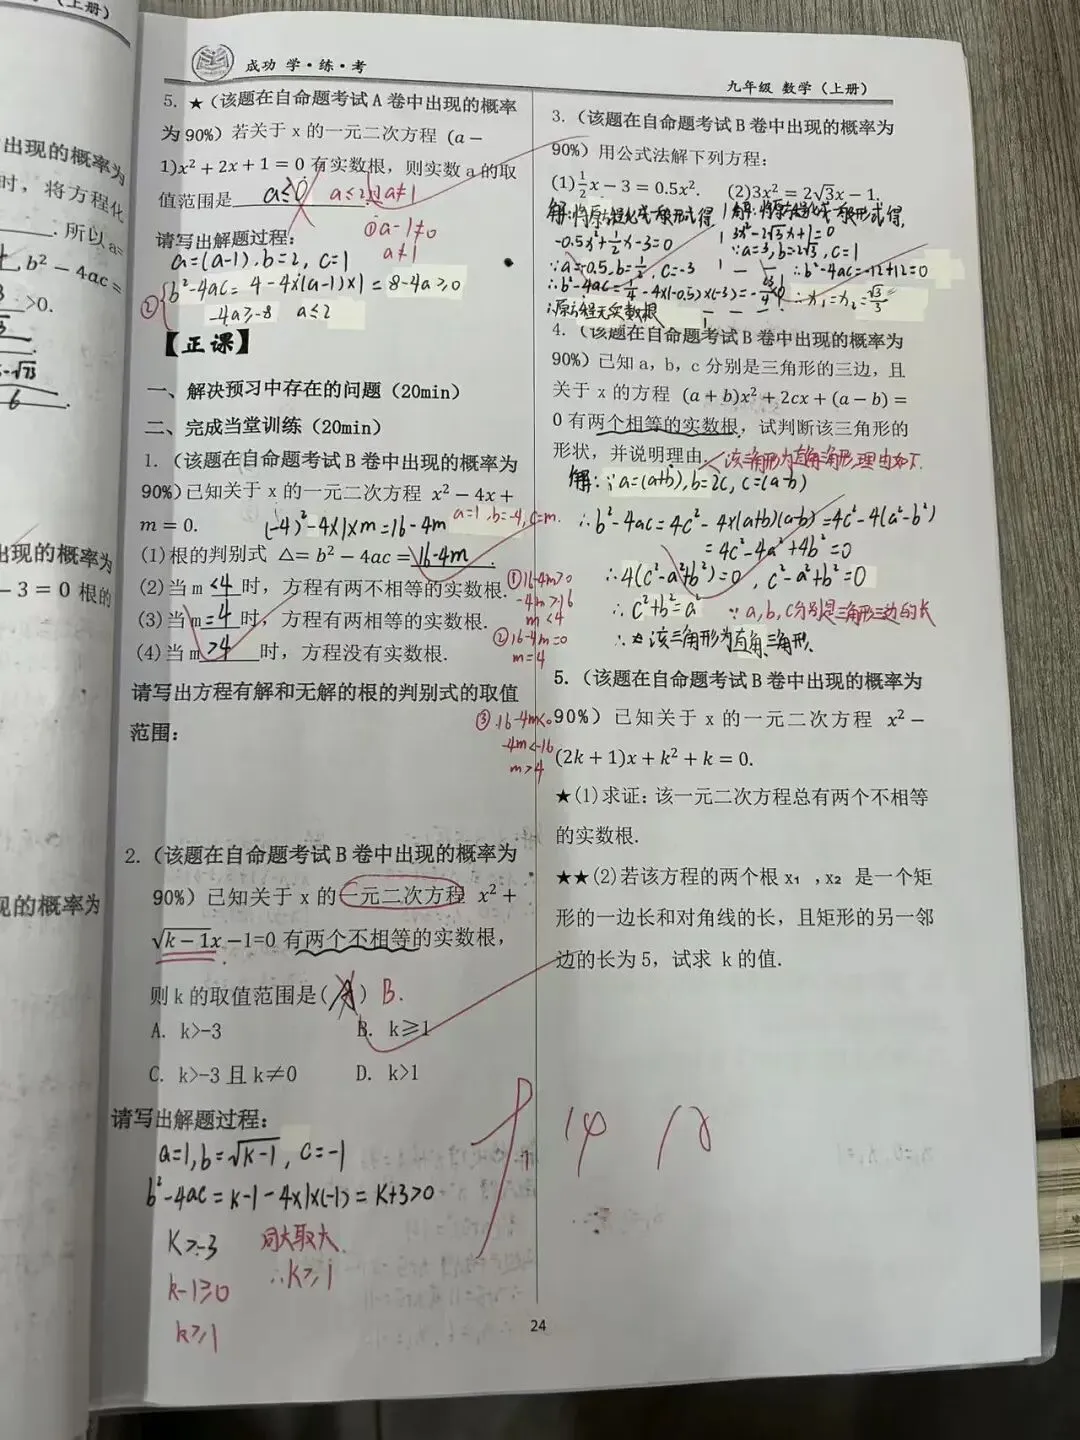 （上册）
出现的概率为
时，将方程化
. 所以 a=
b²-4ac=
>0.
6
出现的概率为
-3=0 根的
现的概率为
成功 学·练·考
九年级 数学（上册）
5. ★（该题在自命题考试A卷中出现的概率
为90%）若关于 x 的一元二次方程 (a-
1)x²+2x+1=0 有实数根，则实数 a 的取
值范围是 a≤0 a≤2且a≠1
请写出解题过程：
①a-1≠0
a≠1
a=(a-1).b=2, c=1
② b²-4ac= 4-4×(a-1)×1=8-4a≥0
-4a≥-8 a≤2
【正课】
一、解决预习中存在的问题（20min）
二、完成当堂训练（20min）
1.（该题在自命题考试B卷中出现的概率为
90%）已知关于 x 的一元二次方程 x²-4x+
m=0. (-4)²-4×1×m=16-4m a=1,b=-4,c=m.
(1)根的判别式 △=b²-4ac=16-4m.
(2)当 m<4 时，方程有两不相等的实数根.
(3)当 m=4 时，方程有两相等的实数根.
(4)当 m>4 时，方程没有实数根.
①16-4m>0
-4m>-16
m<4
②16-4m=0
m=4
请写出方程有解和无解的根的判别式的取值
范围：
③.16-4m<0
-4m<-16
m>4
2.（该题在自命题考试B卷中出现的概率为
90%）已知关于 x 的一元二次方程 x²+
√k-1x-1=0 有两个不相等的实数根，
则 k 的取值范围是( ) B.
A. k>-3 B. k≥1
C. k>-3 且 k≠0 D. k>1
请写出解题过程：
a=1,b=√k-1, c=-1
b²-4ac=k-1-4×1×(-1)=k+3>0
k>-3 同大取大
k-1≥0 ∴k≥1
k≥1
3.（该题在自命题考试B卷中出现的概率为
90%）用公式法解下列方程：
(1)½x-3=0.5x². (2)3x²=2√3x-1.
解:将原方程化成一般形式得,
-0.5x²+½x-3=0
∵a=-0.5,b=½,c=-3
∴b²-4ac=¼-4×(-0.5)×(-3)=-23/4<0
∴原方程无实数根
解:将原方程化成一般形式得,
3x²-2√3x+1=0
∵a=3,b=2√3,c=1
∴b²-4ac=-12+12=0
∴x₁=x₂=√3/3
4.（该题在自命题考试B卷中出现的概率为
90%）已知 a，b，c 分别是三角形的三边，且
关于 x 的方程 (a+b)x²+2cx+(a-b)=
0 有两个相等的实数根，试判断该三角形的
形状，并说明理由. 该三角形为直角三角形,理由如下.
解:∵a=(a+b),b=2c,c=(a-b)
∴b²-4ac=4c²-4×(a+b)(a-b)=4c²-4(a²-b²)
=4c²-4a²+4b²=0
∴4(c²-a²+b²)=0, c²-a²+b²=0
∴c²+b²=a² ∵a,b,c分别是三角形三边的长
∴该三角形为直角三角形.
5.（该题在自命题考试B卷中出现的概率为
90%）已知关于 x 的一元二次方程 x²-
(2k+1)x+k²+k=0.
★(1)求证：该一元二次方程总有两个不相等
的实数根.
★★(2)若该方程的两个根 x₁，x₂ 是一个矩
形的一边长和对角线的长，且矩形的另一邻
边的长为5，试求 k 的值.
24